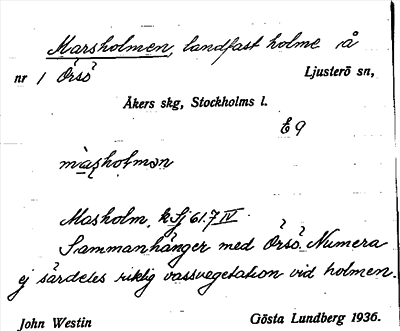 Marsholmen, landfast holme å
nr 1 Örsö Ljusterö sn,
Åkers skg, Stockholms l.
E9
màsholmɘn
Masholm, k Sj 61.7 IV.
Sammanhänger med Örsö. Numera
ej särdeles riklig vassvegetation vid holmen.
John Westin Gösta Lundberg 1936.